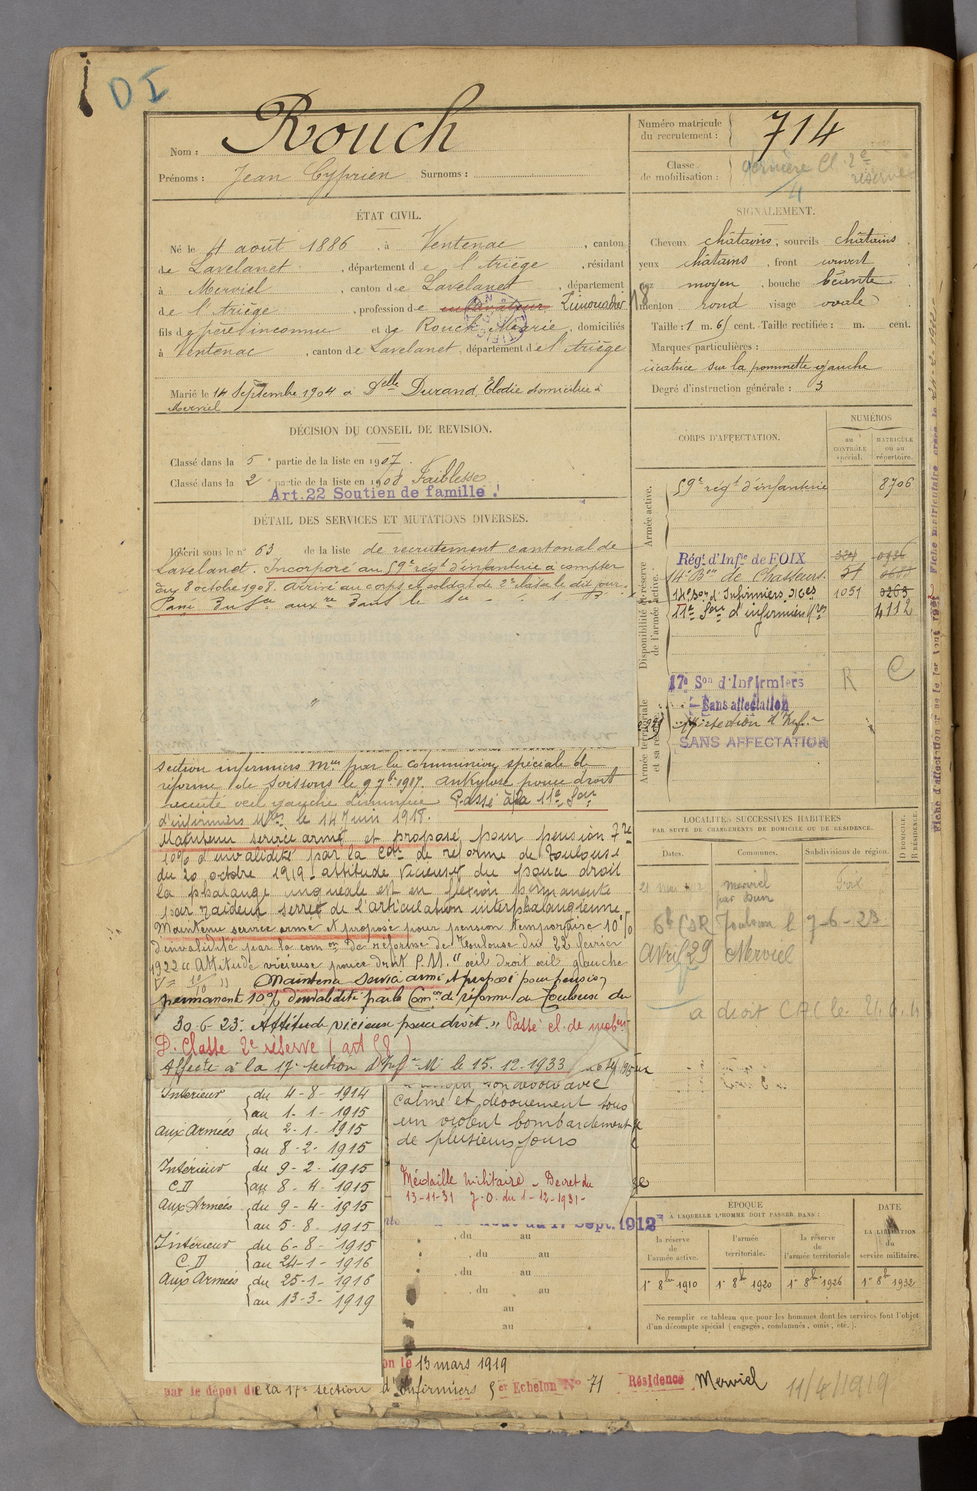 D I
Nom : Rouch
Prénoms : Jean Cyprien Surnoms :
Numéro matricule
du recrutement : 714
Classe
de mobilisation : dernière Cl. 2e
réserve
4
ÉTAT CIVIL.
Né le 4 août 1886, à Ventenac, canton
de Lavelanet, département de l'Ariège, résidant
à Merviel, canton de Lavelanet, département
de l'Ariège, profession de cultivateur Limonadier
fils de père inconnu et de Rouch Marie, domiciliés
à Ventenac, canton de Lavelanet, département de l'Ariège
Marié le 14 Septembre 1904 à Delle Durand Elodie domiciliée à
Merviel
SIGNALEMENT.
Cheveux châtains, sourcils châtains
yeux châtains, front ouvert
nez moyen, bouche béante
menton rond visage ovale
Taille : 1 m. 65 cent. Taille rectifiée : m. cent.
Marques particulières :
cicatrice sur la pommette gauche
Degré d'instruction générale : 3
DÉCISION DU CONSEIL DE REVISION.
Classé dans la 5e partie de la liste en 1907.
Classé dans la 2e partie de la liste en 1908 Faiblesse
Art.22 Soutien de famille.
DÉTAIL DES SERVICES ET MUTATIONS DIVERSES.
Inscrit sous le n° 63 de la liste de recrutement cantonal de
Lavelanet. Incorporé au 59e régt d'infanterie à compter
du 8 octobre 1908. Arrivé au corps et soldat de 2e classe le dit jour.
section infirmiers Mres par la commission spéciale de
réforme de Soissons le 9 7bre 1917. Ankylose pouce droit
acuité oeil gauche diminuée Passé à la 11e Son
d'infirmiers Mres le 14 Juin 1918.
Maintenu service armé et proposé pour pension 7re
10% d'invalidité par la Con de réforme de Toulouse
du 20 octobre 1919. attitude vicieuse du pouce droit
la phalange unguéale est en flexion permanente
par raideur serrée de l'articulation interphalangienne.
Maintenu service armé et proposé pour pension temporaire 10%
d'invalidité par la comon de réforme de Toulouse du 22 février
1922 « Attitude vicieuse pouce droit P.M. " oeil droit oeil gauche
V = 10/10 " Maintenu service armé et proposé pour pension
permanente 10% d'invalidité par la Comon de réforme de Toulouse du
30-6-23. Attitude vicieuse pouce droit." Passé cl. de mobon
D. Classe 2e réserve (art 58)
Affecté à la 17e section d'Infres M. le 15.12.1933
Intérieur du 4-8-1914
au 1-1-1915
aux Armées du 2-1-1915
au 8-2-1915
Intérieur du 9-2-1915
C.D au 8-4-1915
aux Armées du 9-4-1915
au 5-8-1915
Intérieur du 6-8-1915
C D au 24-1-1916
Aux Armées du 25-1-1916
au 13-3-1919
son devoir avec
calme et dévouement sous
un violent bombardement
de plusieurs jours
Médaille militaire. Décret du
13-11-31 J.O. du 1-12-1931-
au 17 Sept. 1912
, du au
, du au
, du au
, du au
au
au
on le 13 mars 1919
par le dépôt de la 17e section d'Infirmiers 5 er Echelon No 71 Résidence Merviel 11/4/1919
CORPS D'AFFECTATION.
NUMÉROS
au
CONTRÔLE
spécial.
MATRICULE
ou au
répertoire.
Armée active.
59e régt d'infanterie 8706
Disponibilité ou réserve
de l'armée active.
Régt d'Infie de FOIX
14e Bon de Chasseurs 51
14e Son d'Infirmiers Mres 1051 0263
11e Son d'infirmiers Mres 4112
Armée territoriale
et sa réserve.
17e Son d'Infirmiers R C
Sans affectation
SANS AFFECTATION
LOCALITÉS SUCCESSIVES HABITÉES
PAR SUITE DE CHANGEMENTS DE DOMICILE OU DE RÉSIDENCE.
Dates. Communes. Subdivisions de région. D DOMICILE. R RÉSIDENCE.
Merviel Foix
par Dun
Toulouse le 7-6-23
Avril 29 Merviel
a droit C A C le
ÉPOQUE
À LAQUELLE L'HOMME DOIT PASSER DANS :
DATE
DE LA LIBÉRATION
du
service militaire.
la réserve
de
l'armée active.
l'armée
territoriale.
la réserve
de
l'armée territoriale
1er 8bre 1910 1er 8bre 1920 1er 8bre 1926 1er 8bre 1932
Ne remplir ce tableau que pour les hommes dont les services font l'objet
d'un décompte spécial (engagés, condamnés, omis, etc.).